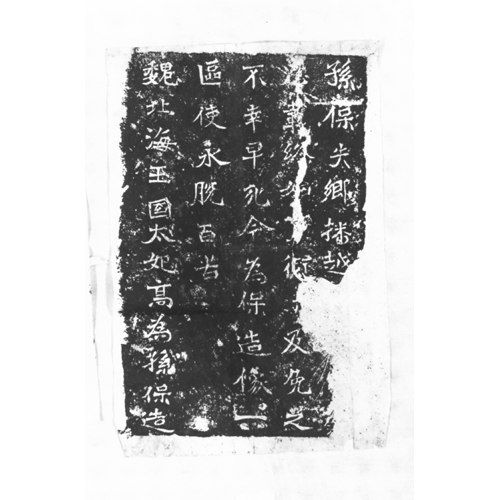 孫保失鄉播越
及免之
不幸早死今為保造像一
區使永脫百苦
魏北海王国太妃高為孫保造